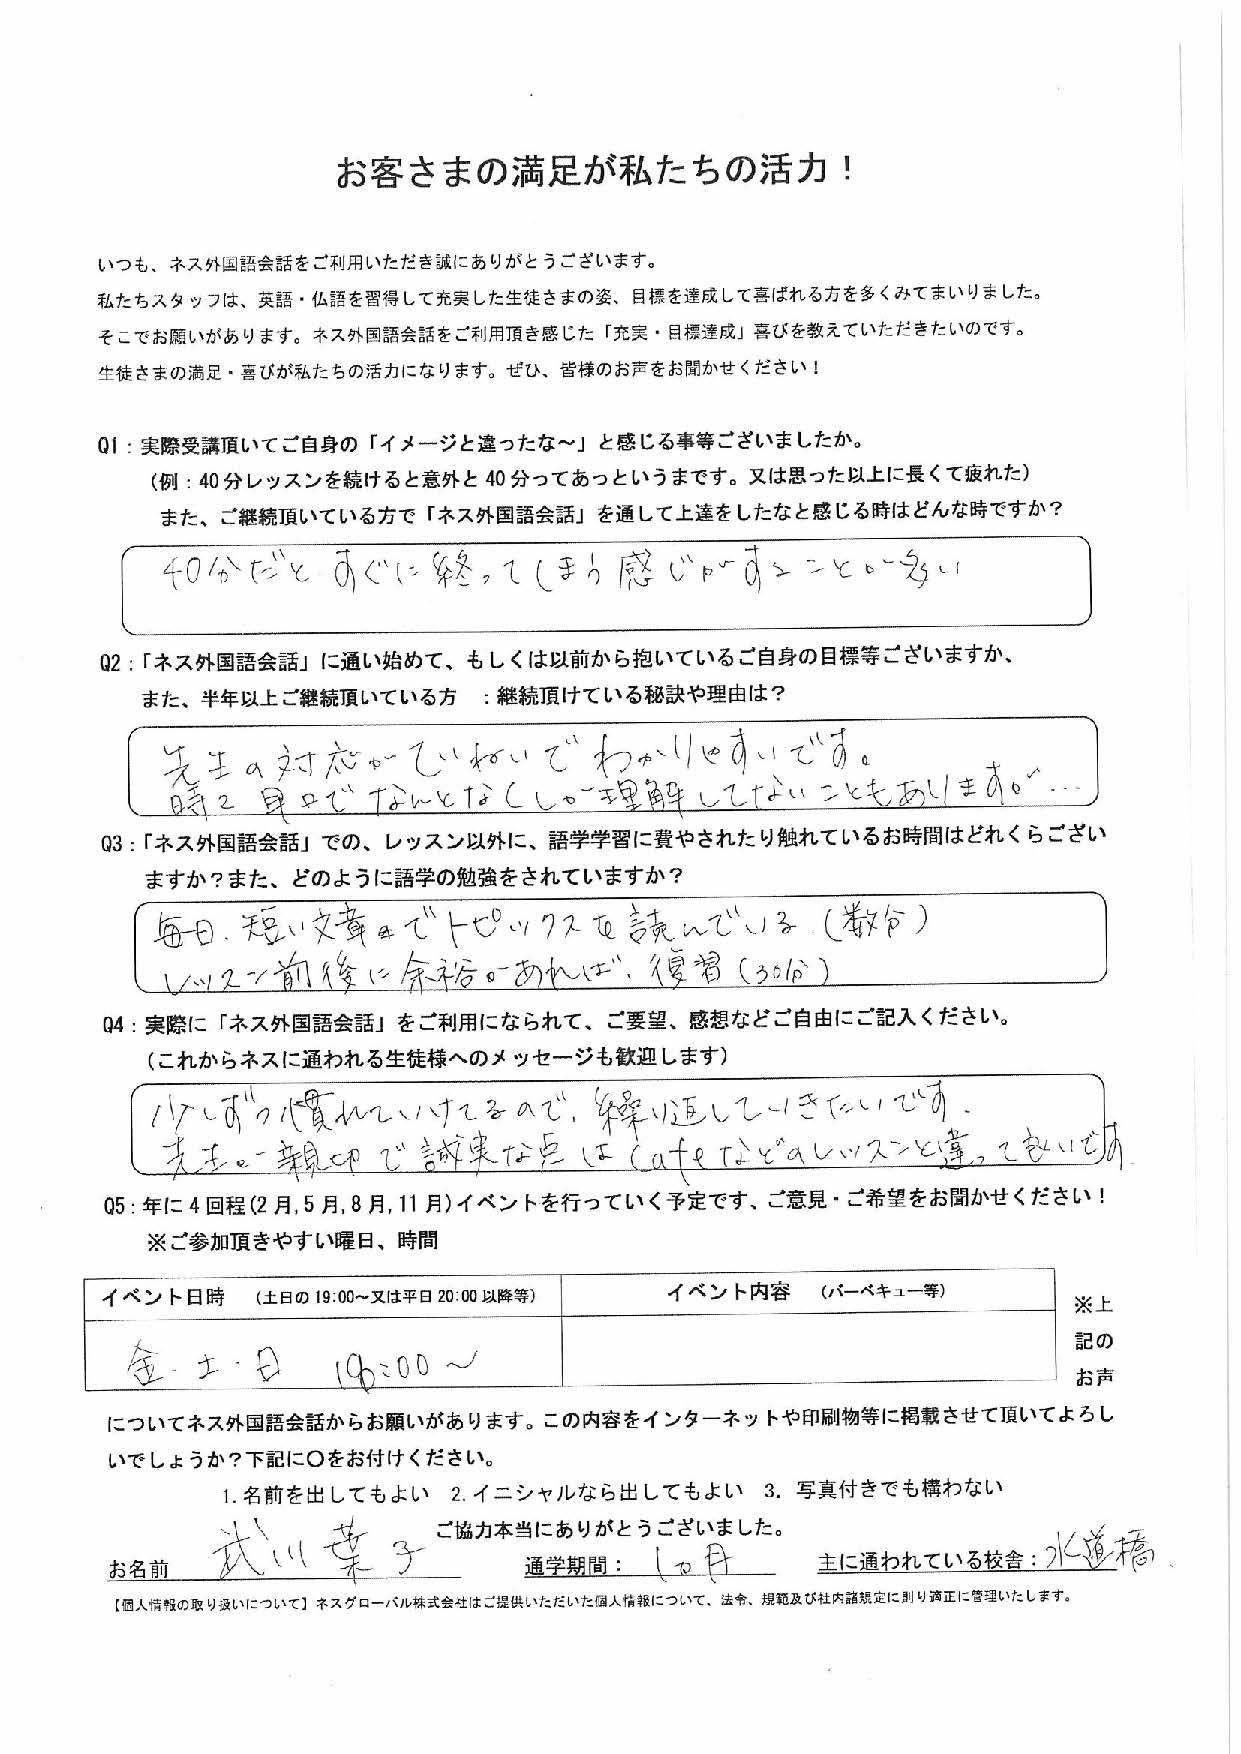 お客さまの満足が私たちの活力！
いつも、ネス外国語会話をご利用いただき誠にありがとうございます。
私たちスタッフは、英語・仏語を習得して充実した生徒さまの姿、目標を達成して喜ばれる方を多くみてまいりました。
そこでお願いがあります。ネス外国語会話をご利用頂き感じた「充実・目標達成」喜びを教えていただきたいのです。
生徒さまの満足・喜びが私たちの活力になります。ぜひ、皆様のお声をお聞かせください！
Q1：実際受講頂いてご自身の「イメージと違ったな～」と感じる事等ございましたか。
（例：40分レッスンを続けると意外と40分ってあっというまです。又は思った以上に長くて疲れた）
また、ご継続頂いている方で「ネス外国語会話」を通して上達をしたなと感じる時はどんな時ですか？
40分だと すぐに終ってしまう感じがすることが多い
Q2：「ネス外国語会話」に通い始めて、もしくは以前から抱いているご自身の目標等ございますか、
また、半年以上ご継続頂いている方　：継続頂けている秘訣や理由は？
先生の対応がていねいでわかりやすいです。
時々早口でなんとなくしか理解してないこともありますが…
Q3：「ネス外国語会話」での、レッスン以外に、語学学習に費やされたり触れているお時間はどれくらござい
ますか？また、どのように語学の勉強をされていますか？
毎日、短い文章でトピックスを読んでいる（数分）
レッスン前後に余裕があれば、復習（30分）
Q4：実際に「ネス外国語会話」をご利用になられて、ご要望、感想などご自由にご記入ください。
（これからネスに通われる生徒様へのメッセージも歓迎します）
少しずつ慣れていけてるので、繰り返していきたいです。
先生が親切で誠実な点はCafeなどのレッスンと違って良いです
Q5：年に4回程(2月,5月,8月,11月)イベントを行っていく予定です、ご意見・ご希望をお聞かせください！
※ご参加頂きやすい曜日、時間
イベント日時　（土日の19:00～又は平日20:00以降等）　イベント内容　（バーベキュー等）
※上
記の
お声
金・土・日　:00～
についてネス外国語会話からお願いがあります。この内容をインターネットや印刷物等に掲載させて頂いてよろし
いでしょうか？下記に〇をお付けください。
1.名前を出してもよい　2.イニシャルなら出してもよい　3. 写真付きでも構わない
ご協力本当にありがとうございました。
お名前　武川葉子　通学期間：　1ヵ月　主に通われている校舎：水道橋
【個人情報の取り扱いについて】ネスグローバル株式会社はご提供いただいた個人情報について、法令、規範及び社内諸規定に則り適正に管理いたします。